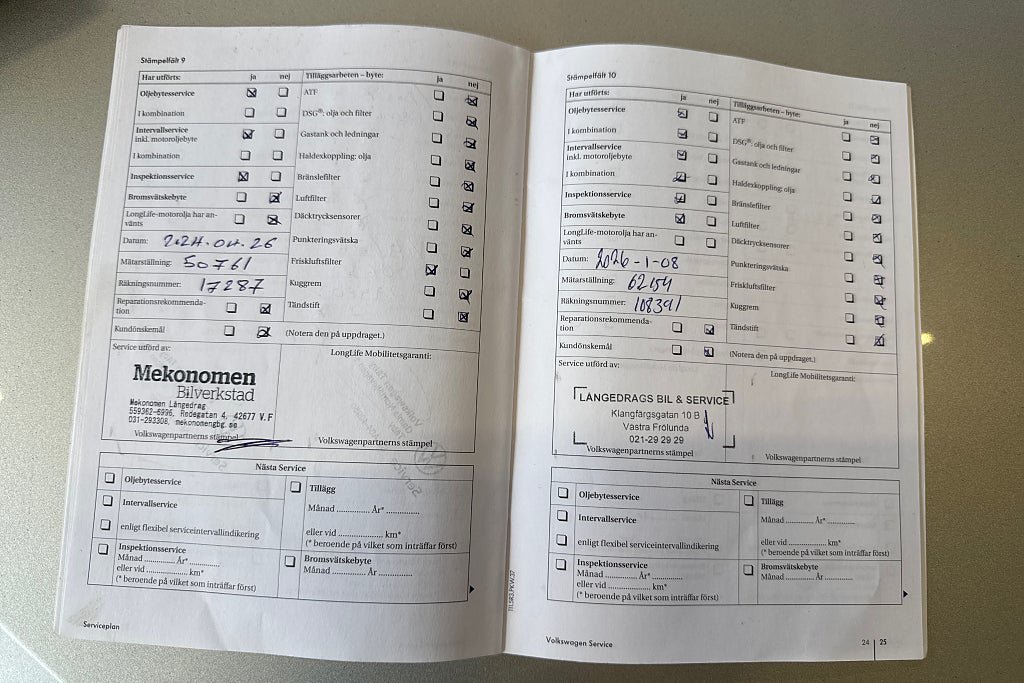 Stämpelfält 9
Har utförts: ja nej
Oljebytesservice
I kombination
Intervallservice
inkl. motoroljebyte
I kombination
Inspektionsservice
Bromsvätskebyte
LongLife-motorolja har an-
vänts
Datum: 2024-04-26
Mätarställning: 50761
Räkningsnummer: 17287
Reparationsrekommenda-
tion
Kundönskemål
(Notera den på uppdraget.)
Tilläggsarbeten – byte: ja nej
ATF
DSG®: olja och filter
Gastank och ledningar
Haldexkoppling: olja
Bränslefilter
Luftfilter
Däcktrycksensorer
Punkteringsvätska
Friskluftsfilter
Kuggrem
Tändstift
Service utförd av:
Mekonomen
Bilverkstad
Mekonomen Långedrag
559362-6996, Redegatan 4, 42677 V.F
031-293308, mekonomengbg.se
Volkswagenpartnerns stämpel
LongLife Mobilitetsgaranti:
Volkswagenpartnerns stämpel
Nästa Service
Oljebytesservice
Intervallservice
enligt flexibel serviceintervallindikering
Inspektionsservice
Månad ............ År* ............
eller vid .................. km*
(* beroende på vilket som inträffar först)
Tillägg
Månad ............ År* ............
eller vid .................. km*
(* beroende på vilket som inträffar först)
Bromsvätskebyte
Månad ............ År ............
Serviceplan
Stämpelfält 10
Har utförts: ja nej
Oljebytesservice
I kombination
Intervallservice
inkl. motoroljebyte
I kombination
Inspektionsservice
Bromsvätskebyte
LongLife-motorolja har an-
vänts
Datum: 2026-1-08
Mätarställning: 62154
Räkningsnummer: 108391
Reparationsrekommenda-
tion
Kundönskemål
(Notera den på uppdraget.)
Tilläggsarbeten – byte: ja nej
ATF
DSG®: olja och filter
Gastank och ledningar
Haldexkoppling: olja
Bränslefilter
Luftfilter
Däcktrycksensorer
Punkteringsvätska
Friskluftsfilter
Kuggrem
Tändstift
Service utförd av:
LÅNGEDRAGS BIL & SERVICE
Klangfärgsgatan 10 B
Västra Frölunda
021-29 29 29
Volkswagenpartnerns stämpel
LongLife Mobilitetsgaranti:
Volkswagenpartnerns stämpel
Nästa Service
Oljebytesservice
Intervallservice
enligt flexibel serviceintervallindikering
Inspektionsservice
Månad ............ År* ............
eller vid .................. km*
(* beroende på vilket som inträffar först)
Tillägg
Månad ............ År* ............
eller vid .................. km*
(* beroende på vilket som inträffar först)
Bromsvätskebyte
Månad ............ År ............
Volkswagen Service
24 | 25